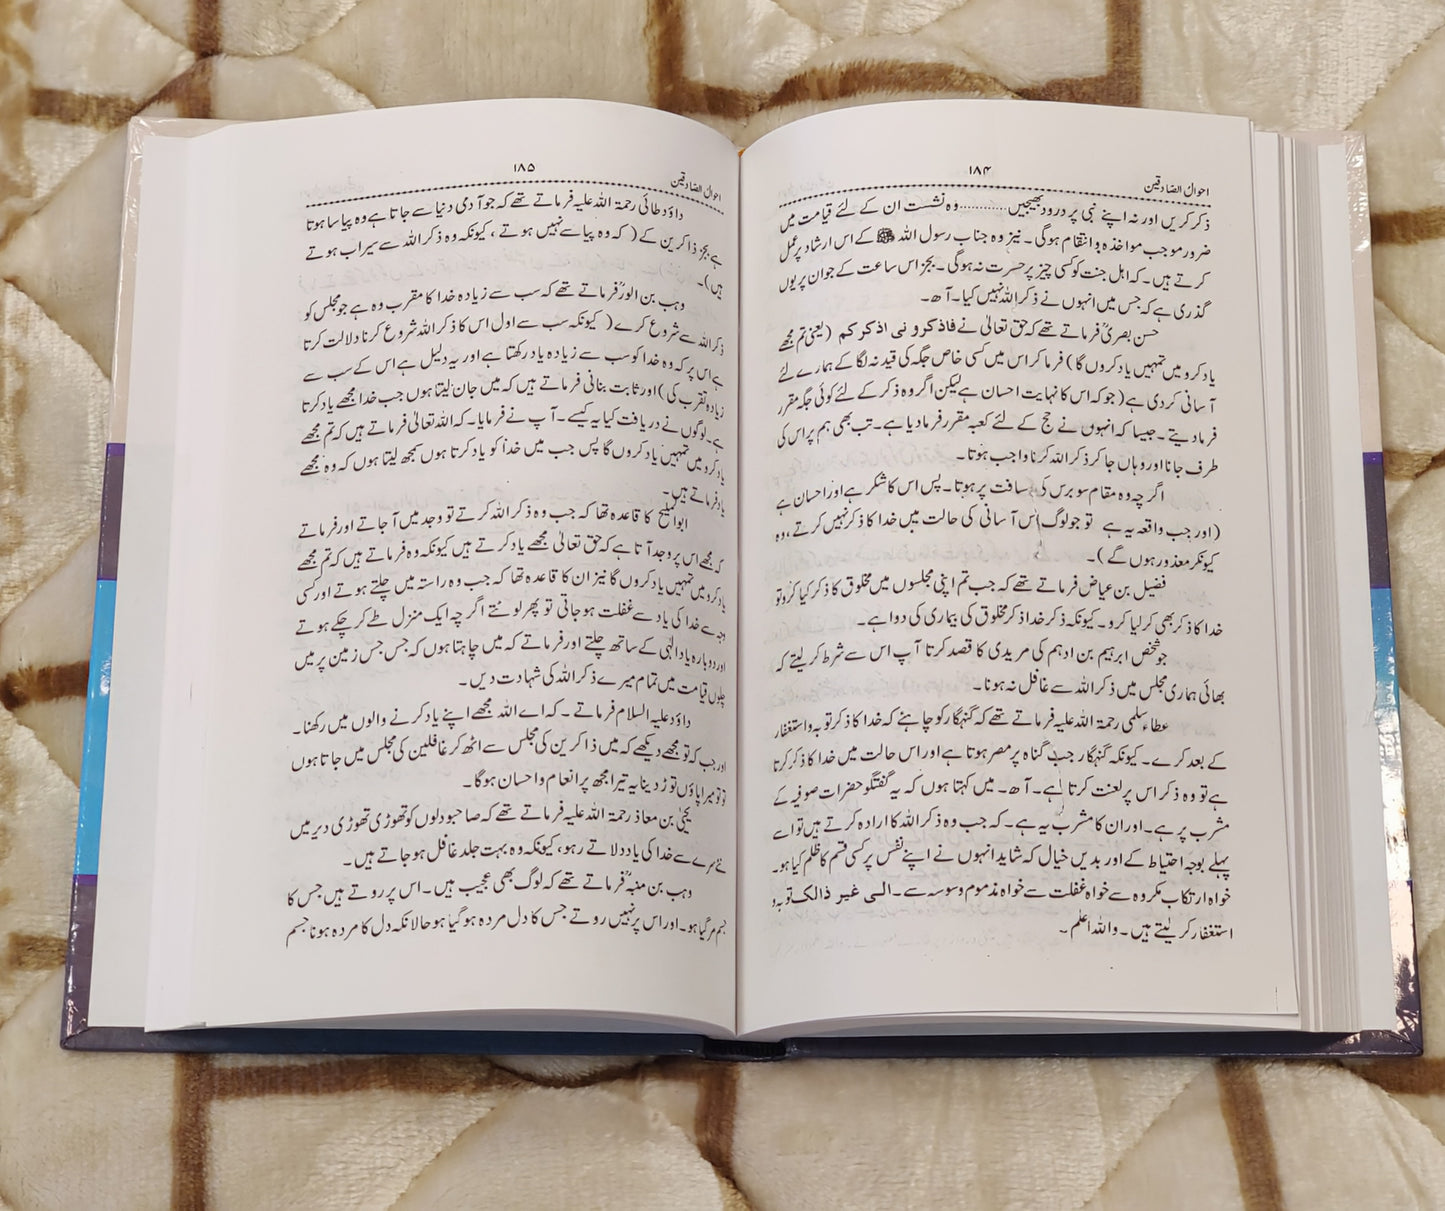 احوال الصادقین
۱۸۴
ذکر کریں اور نہ اپنے نبی پر درود بھیجیں............وہ نشست ان کے لئے قیامت میں
ضرور موجب مواخذہ و انتقام ہوگی۔ نیز وہ جناب رسول اللہ ﷺ کے اس ارشاد پر عمل
کرتے ہیں۔ کہ اہل جنت کو کسی چیز پر حسرت نہ ہوگی۔ بجز اس ساعت کے جو ان پر یوں
گذری ہے کہ جس میں انہوں نے ذکر اللہ نہیں کیا۔ آھ۔
حسن بصریؒ فرماتے تھے کہ حق تعالیٰ نے فاذکرونی اذکرکم (یعنی تم مجھے
یاد کرو میں تمہیں یاد کروں گا) فرما کر اس میں کسی خاص جگہ کی قید نہ لگا کے ہمارے لئے
آسانی کردی ہے (جو کہ اس کا نہایت احسان ہے لیکن اگر وہ ذکر کے لئے کوئی جگہ مقرر
فرمادیتے۔ جیسا کہ انہوں نے حج کے لئے کعبہ مقرر فرمادیا ہے۔ تب بھی ہم پر اس کی
طرف جانا اور وہاں جا کر ذکر اللہ کرنا واجب ہوتا۔
اگر چہ وہ مقام سو برس کی مسافت پر ہوتا۔ پس اس کا شکر ہے اور احسان ہے
(اور جب واقعہ یہ ہے تو جو لوگ اس آسانی کی حالت میں خدا کا ذکر نہیں کرتے، وہ
کیونکر معذور ہوں گے)۔
فضیل بن عیاض فرماتے تھے کہ جب تم اپنی مجلسوں میں مخلوق کا ذکر کیا کرو تو
خدا کا ذکر بھی کرلیا کرو۔ کیونکہ ذکر خدا ذکر مخلوق کی بیماری کی دوا ہے۔
جو شخص ابرہیم بن ادہم کی مریدی کا قصد کرتا آپ اس سے شرط کرلیتے کہ
بھائی ہماری مجلس میں ذکر اللہ سے غافل نہ ہونا۔
عطاء سلمی رحمۃ اللہ علیہ فرماتے تھے کہ گنہگار کو چاہئے کہ خدا کا ذکر توبہ و استغفار
کے بعد کرے۔ کیونکہ گنہگار جب گناہ پر مصر ہوتا ہے اور اس حالت میں خدا کا ذکر کرتا
ہے تو وہ ذکر اس پر لعنت کرتا ہے۔ آھ۔ میں کہتا ہوں کہ یہ گفتگو حضرات صوفیہ کے
مشرب پر ہے۔ اور ان کا مشرب یہ ہے۔ کہ جب وہ ذکر اللہ کا ارادہ کرتے ہیں تو اسے
پہلے بوجہ احتیاط کے اور بدیں خیال کہ شاید انہوں نے اپنے نفس پر کسی قسم کا ظلم کیا ہو۔
خواہ ارتکاب مکروہ سے خواہ غفلت سے خواہ مذموم وسوسہ سے۔ الی غیر ذالک توبہ و
استغفار کر لیتے ہیں۔ واللہ اعلم۔
احوال الصادقین
۱۸۵
داؤد طائی رحمۃ اللہ علیہ فرماتے تھے کہ جو آدمی دنیا سے جاتا ہے وہ پیاسا ہوتا
ہے بجز ذاکرین کے (کہ وہ پیاسے نہیں ہوتے، کیونکہ وہ ذکر اللہ سے سیراب ہوتے
ہیں)۔
وہب بن الوردؒ فرماتے تھے کہ سب سے زیادہ خدا کا مقرب وہ ہے جو مجلس کو
ذکر اللہ سے شروع کرے (کیونکہ سب سے اول اس کا ذکر اللہ شروع کرنا دلالت کرتا
ہے اس پر کہ وہ خدا کو سب سے زیادہ یاد رکھتا ہے اور یہ دلیل ہے اس کے سب سے
زیادہ تقرب کی) اور ثابت بنانی فرماتے ہیں کہ میں جان لیتا ہوں جب خدا مجھے یاد کرتا
ہے۔ لوگوں نے دریافت کیا یہ کیسے۔ آپ نے فرمایا۔ کہ اللہ تعالیٰ فرماتے ہیں کہ تم مجھے
یاد کرو میں تمہیں یاد کروں گا پس جب میں خدا کو یاد کرتا ہوں سمجھ لیتا ہوں کہ وہ مجھے
یاد فرماتے ہیں۔
ابو الملیح کا قاعدہ تھا کہ جب وہ ذکر اللہ کرتے تو وجد میں آجاتے اور فرماتے
کہ مجھے اس پر وجد آتا ہے کہ حق تعالیٰ مجھے یاد کرتے ہیں کیونکہ وہ فرماتے ہیں کہ تم مجھے
یاد کرو میں تمہیں یاد کروں گا نیز ان کا قاعدہ تھا کہ جب وہ راستہ میں چلتے ہوتے اور کسی
وجہ سے خدا کی یاد سے غفلت ہو جاتی تو پھر لوٹتے اگر چہ ایک منزل طے کر چکے ہوتے
اور دوبارہ یاد الٰہی کے ساتھ چلتے اور فرماتے کہ میں چاہتا ہوں کہ جس جس زمین پر میں
چلوں قیامت میں تمام میرے ذکر اللہ کی شہادت دیں۔
داؤد علیہ السلام فرماتے۔ کہ اے اللہ مجھے اپنے یاد کرنے والوں میں رکھنا۔
اور جب کہ تو مجھے دیکھے کہ میں ذاکرین کی مجلس سے اٹھ کر غافلین کی مجلس میں جاتا ہوں
تو تو میرا پاؤں توڑ دینا یہ تیرا مجھ پر انعام و احسان ہوگا۔
یحییٰ بن معاذ رحمۃ اللہ علیہ فرماتے تھے کہ صاحبو دلوں کو تھوڑی تھوڑی دیر میں
نئے سرے سے خدا کی یاد دلاتے رہو، کیونکہ وہ بہت جلد غافل ہو جاتے ہیں۔
وہب بن منبہؒ فرماتے تھے کہ لوگ بھی عجیب ہیں۔ اس پر روتے ہیں جس کا
جسم مر گیا ہو۔ اور اس پر نہیں روتے جس کا دل مردہ ہو گیا ہو حالانکہ دل کا مردہ ہونا جسم